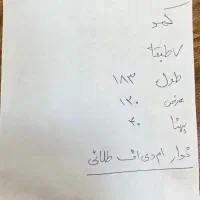 کمد
۷ طبقا
طول ۱۸۳
عرض ۱۲۰
پهنا ۴۰
نوار ام دی اف طلائی